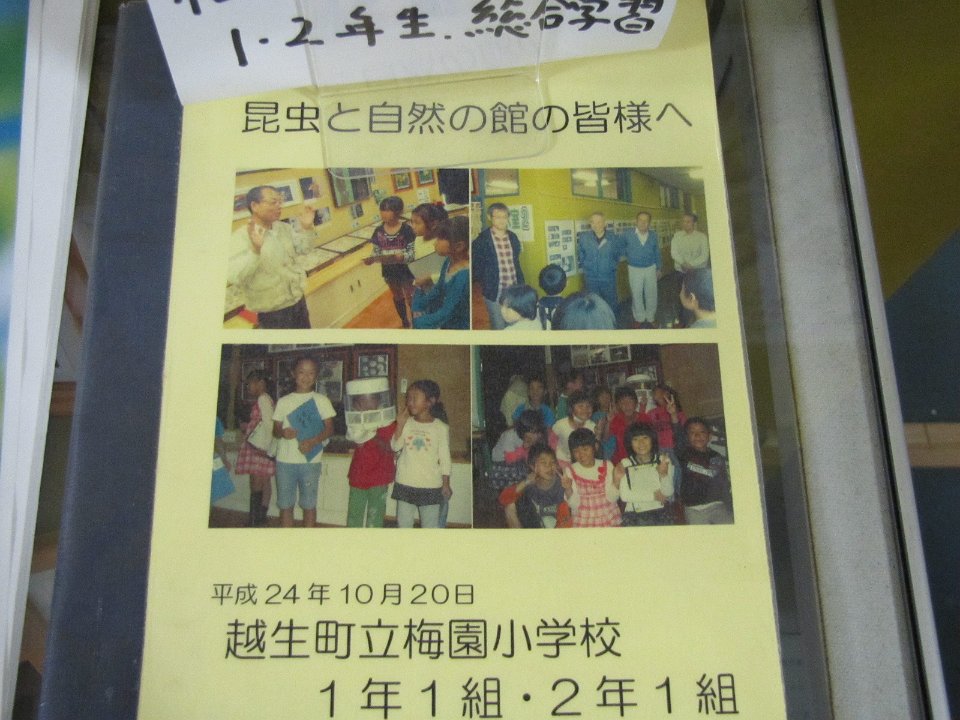 1・2年生.総合学習
昆虫と自然の館の皆様へ
平成24年10月20日
越生町立梅園小学校
1年1組・2年1組